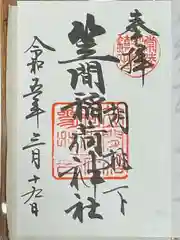 奉拝
胡桃下
笠間稲荷神社
令和五年三月十五日